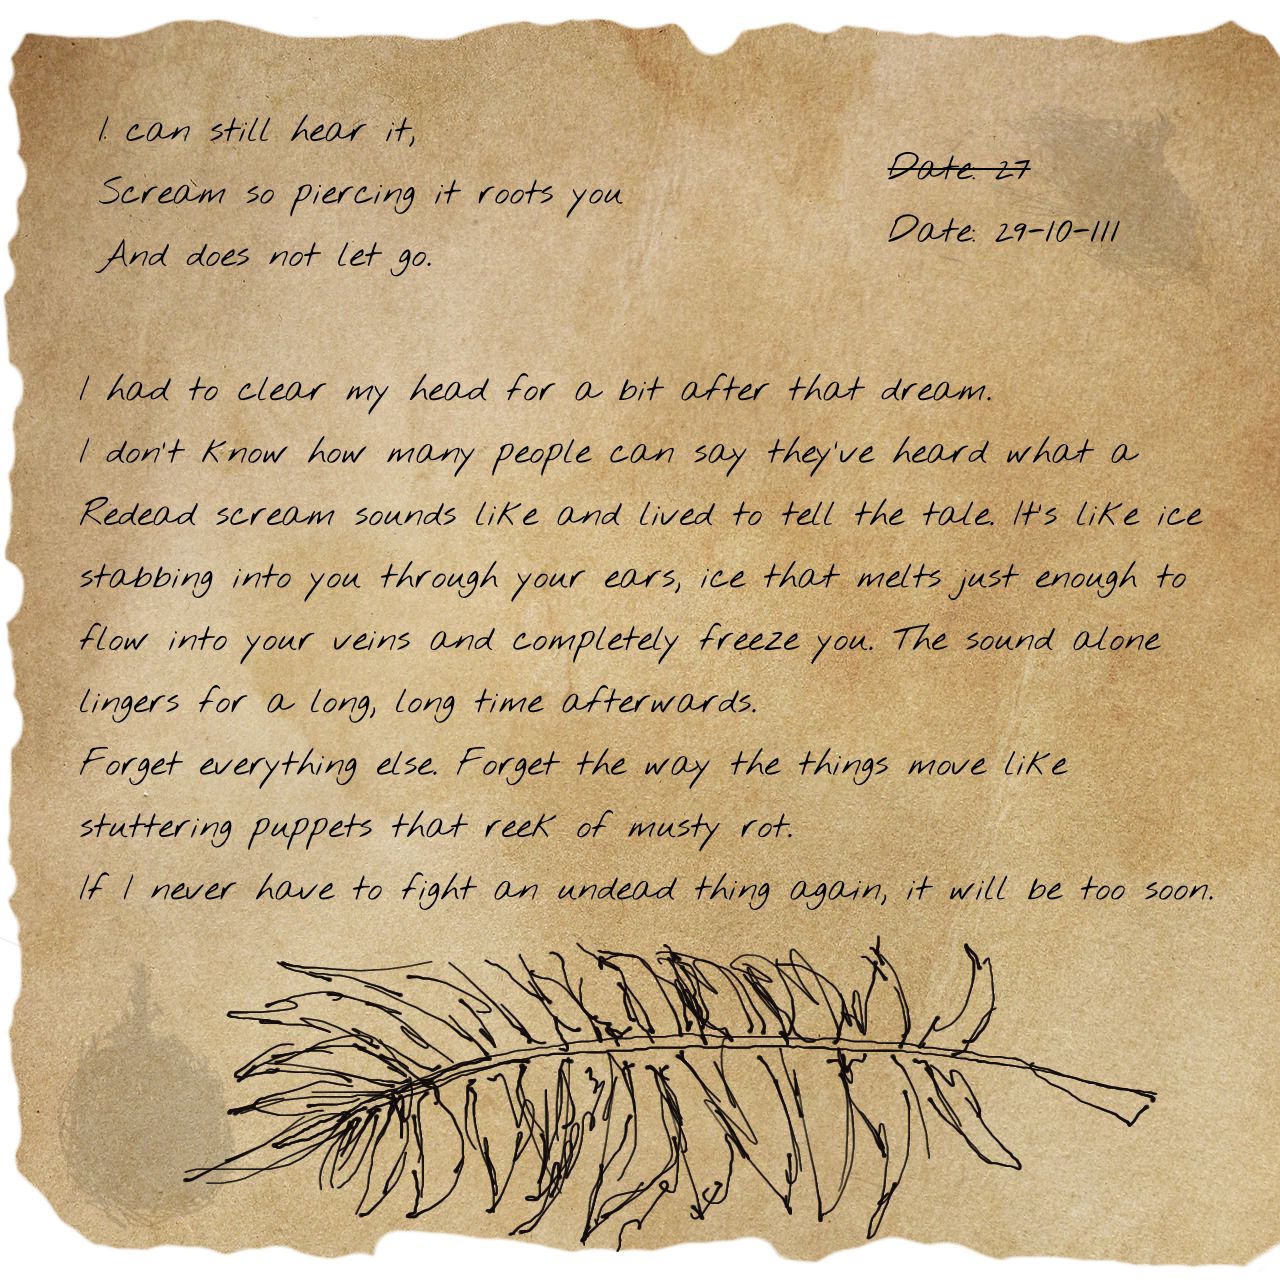 I can still hear it,
Scream so piercing it roots you
And does not let go.
Date: 27
Date: 29-10-111
I had to clear my head for a bit after that dream.
I don't know how many people can say they've heard what a
Redead scream sounds like and lived to tell the tale. It's like ice
stabbing into you through your ears, ice that melts just enough to
flow into your veins and completely freeze you. The sound alone
lingers for a long, long time afterwards.
Forget everything else. Forget the way the things move like
stuttering puppets that reek of musty rot.
If I never have to fight an undead thing again, it will be too soon.